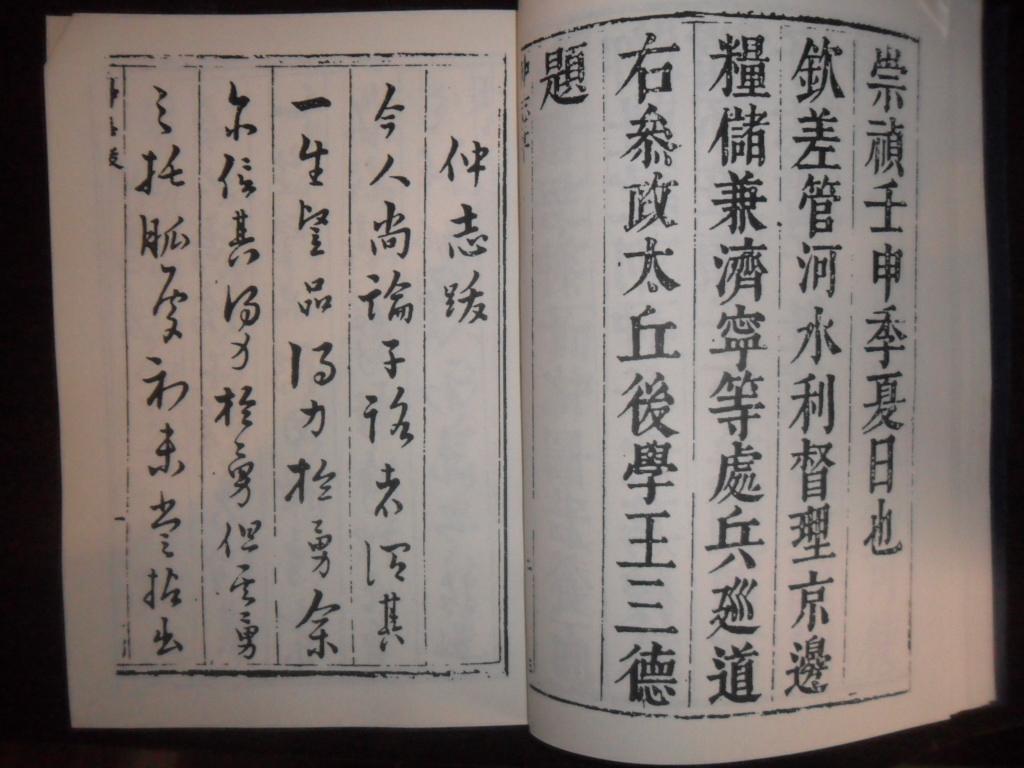 崇禎壬申季夏日也
欽差管河水利督理京邊
糧儲兼濟寧等處兵廵道
右叅政太丘後學王三德
題
仲志跋
今人尚論子路者謂其
一生聖品得力於勇余
亦信其得力於勇但其勇
之托胍處初未嘗拈出